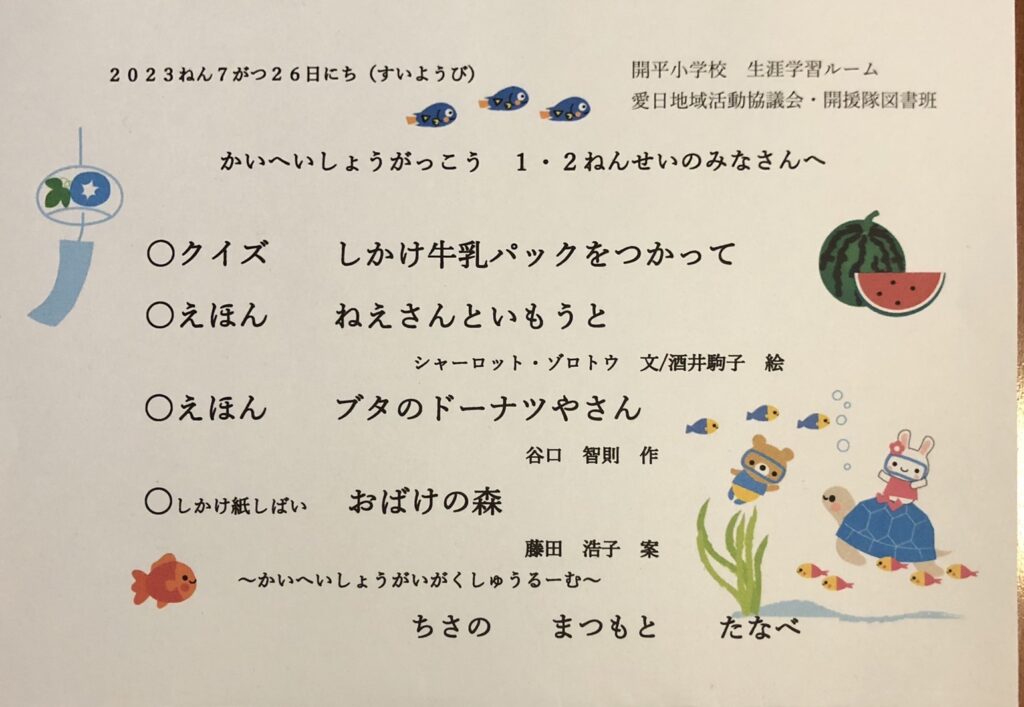 ２０２３ねん７がつ２６日にち（すいようび）
開平小学校　生涯学習ルーム
愛日地域活動協議会・開援隊図書班
かいへいしょうがっこう　１・２ねんせいのみなさんへ
〇クイズ　しかけ牛乳パックをつかって
〇えほん　ねえさんといもうと
シャーロット・ゾロトウ　文/酒井駒子　絵
〇えほん　ブタのドーナツやさん
谷口　智則　作
〇しかけ紙しばい　おばけの森
藤田　浩子　案
～かいへいしょうがいがくしゅうるーむ～
ちさの　まつもと　たなべ